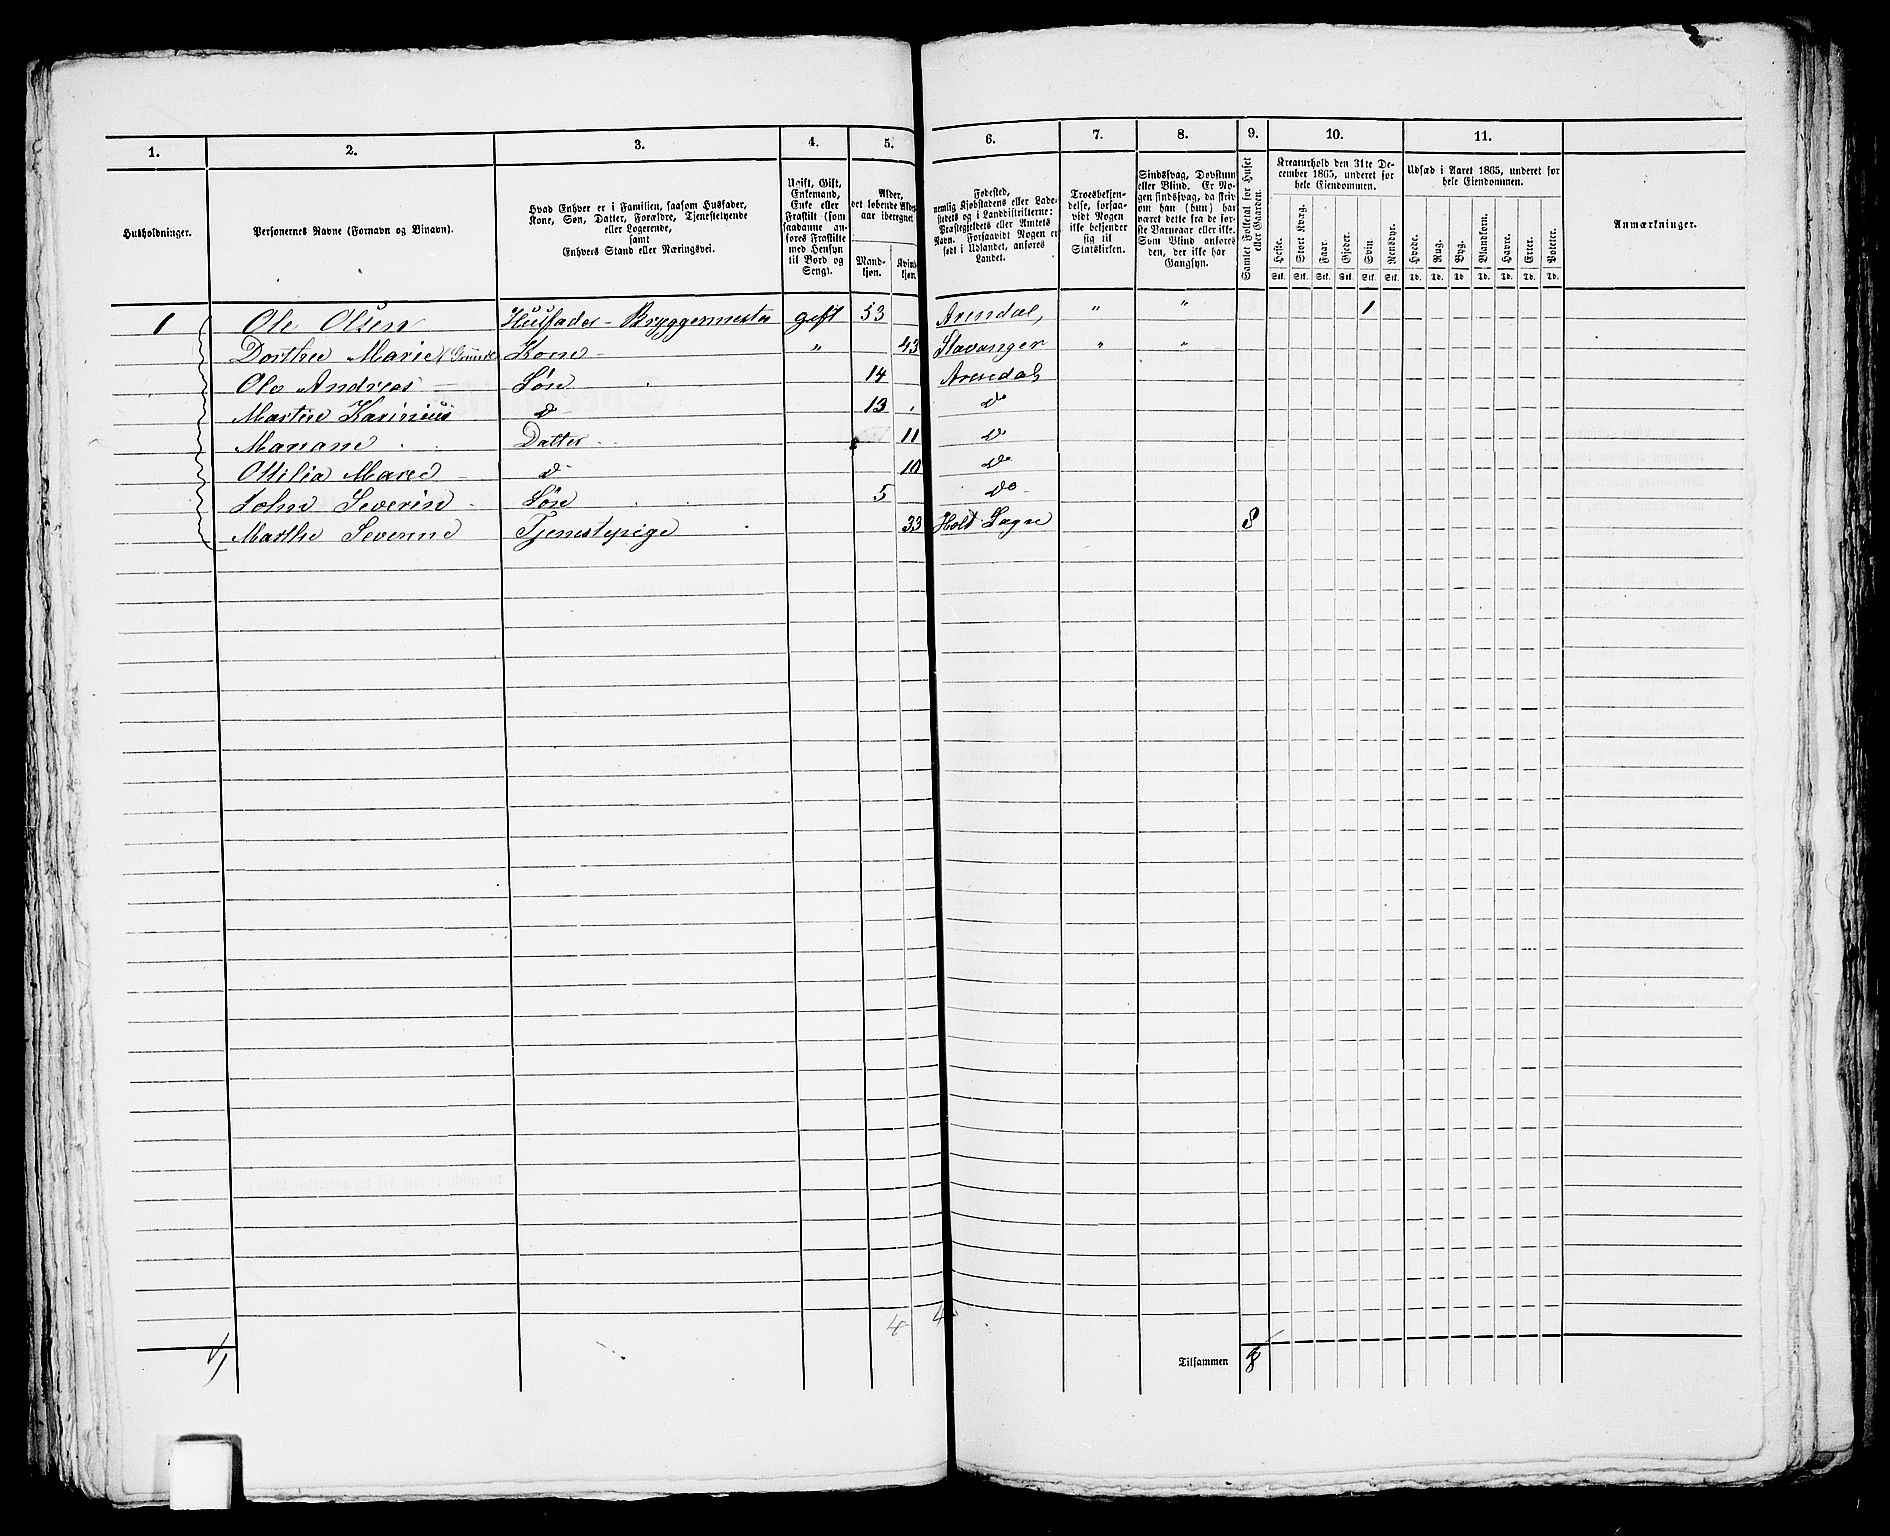 1. 2. 3. 4. 5. 6. 7. 8. 9. 10. 11.
Husholdninger.
Personernes Navne (Fornavn og Binavn).
Hvad Enhver er i Familien, saasom Husfader,
Kone, Søn, Datter, Forældre, Tjenestetyende
eller Logerende,
samt
Enhvers Stand eller Næringsvei.
Ugift, Gift,
Enkemand,
Enke eller
Fraskilt (som
saadanne an-
føres Fraskilte
med Hensyn
til Bord og
Seng).
Alder,
det løbende Alders-
aar iberegnet
Mand-
kjøn.
Kvind-
kjøn.
Fødested,
nemlig Kjøbstadens eller Lade-
stedets og i Landdistrikterne:
Præstegjeldets eller Amtets
Navn. Forsaavidt Nogen er
født i Udlandet, anføres
Landet.
Troesbekjen-
delse, forsaa-
vidt Nogen
ikke bekjender
sig til
Statskirken.
Sindssvag, Døvstum
eller Blind. Er No-
gen sindssvag, da skriv
om han (hun) har
været dette fra de før-
ste Barneaar eller ikke.
Som Blind anføres
den, der ikke har
Gangsyn.
Samlet Folketal for Huset
eller Gaarden.
Kreaturhold den 31te De-
cember 1865, underet for
hele Eiendommen.
Heste. Stort Kvæg. Faar. Gjeder. Svin. Rensdyr.
Stk. Stk. Stk. Stk. Stk. Stk.
Udsæd i Aaret 1865, underet for
hele Eiendommen.
Hvede. Rug. Byg. Blandkorn. Havre. Erter. Poteter.
Td. Td. Td. Td. Td. Td. Td.
Anmærkninger.
1 Ole Olsen Husfader - Bryggermester gift 53 Arendal, " " 1
Dorthee Marie Kone " 43 Stavanger " "
Ole Andreas Søn 14 Arendal
Martin Karinius do 13 do
Mariane Datter 11 do
Ottilia Marie do 10 do
John Severin Søn 5 do
Marthe Severine Tjenestepige 33 Holt Sogn 8
4 4
1 Tilsammen 8